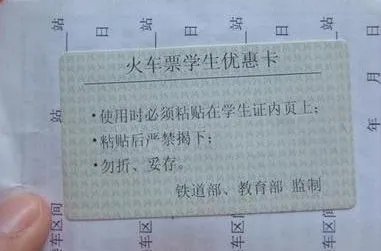 火车票学生优惠卡
·使用时必须粘贴在学生证内页上；
·粘贴后严禁揭下；
·勿折、妥存。
铁道部、教育部 监制
站
日
站
日
站
日
站
年 月 日
站
站
站
车区间
车区间
车区间